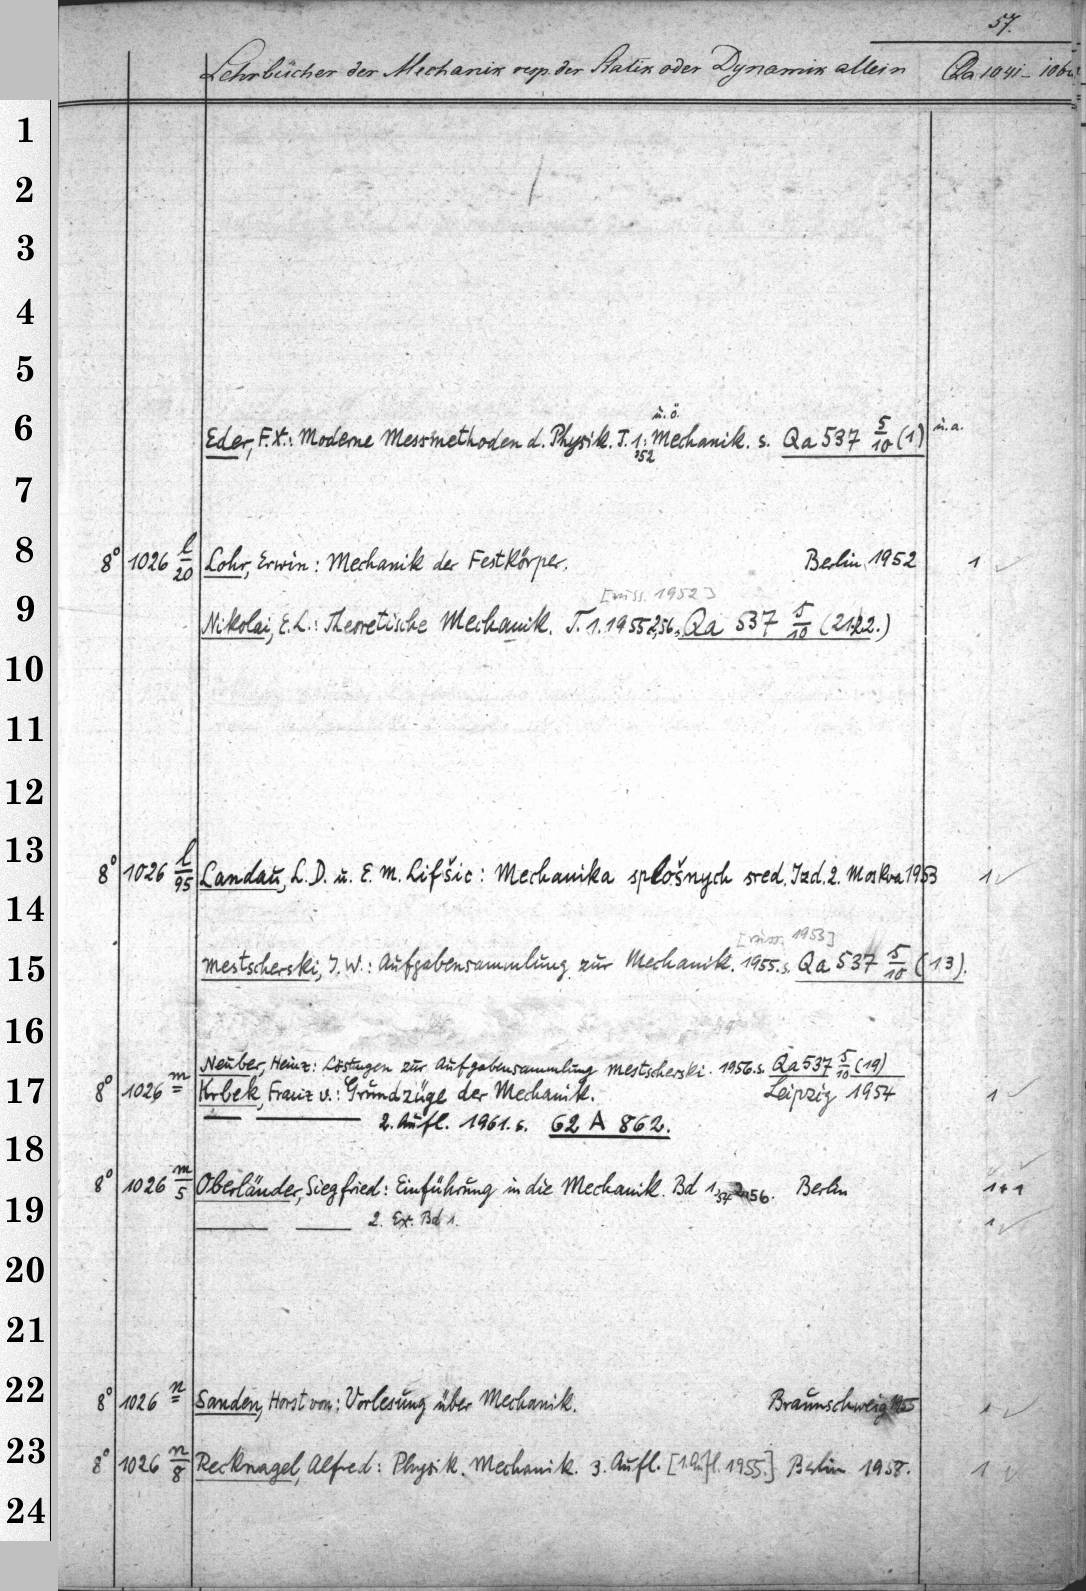 57.
Lehrbücher der Mechanik resp. der Statik oder Dynamik allein Qa 1041-
1
2
3
4
5
u. ö.
6 Eder, F.X.: Moderne Messmethoden d. Physik. T. 1: Mechanik. s. Qa 537 5/10 (1) u. a.
'52
7
8 8° 1026 l/20 Lohr, Erwin: Mechanik der Festkörper. Berlin 1952 1 ✓
[russ. 1952]
9 Nikolai, E.L.: Theoretische Mechanik. T. 1. 1955 2,56. Qa 537 5/10 (21.22.)
10
11
12
13 8° 1026 l/95 Landau, L.D. u. E.M. Lifšic: Mechanika splošnych sred. Izd. 2. Moskva 1953 1 ✓
14
[russ. 1953]
15 Mestscherski, I.W.: Aufgabensammlung zur Mechanik. 1955. s. Qa 537 5/10 (13).
16
Neuber, Heinz: Lösungen zur Aufgabensammlung Mestscherski. 1956. s. Qa 537 5/10 (19)
17 8° 1026 m Krbek, Franz v.: Grundzüge der Mechanik. Leipzig 1954 1 ✓
2. Aufl. 1961. s. 62 A 862.
18
8° 1026 m/5 Oberländer, Siegfried: Einführung in die Mechanik. Bd 1,54 2,56. Berlin 1+1
19 2. Ex. Bd 1. 1 ✓
20
21
22 8° 1026 n Sanden, Horst von: Vorlesung über Mechanik. Braunschweig 1955 1 ✓
23 8° 1026 n/8 Recknagel, Alfred: Physik. Mechanik. 3. Aufl. [1. Aufl. 1955.] Berlin 1958. 1 ✓
24